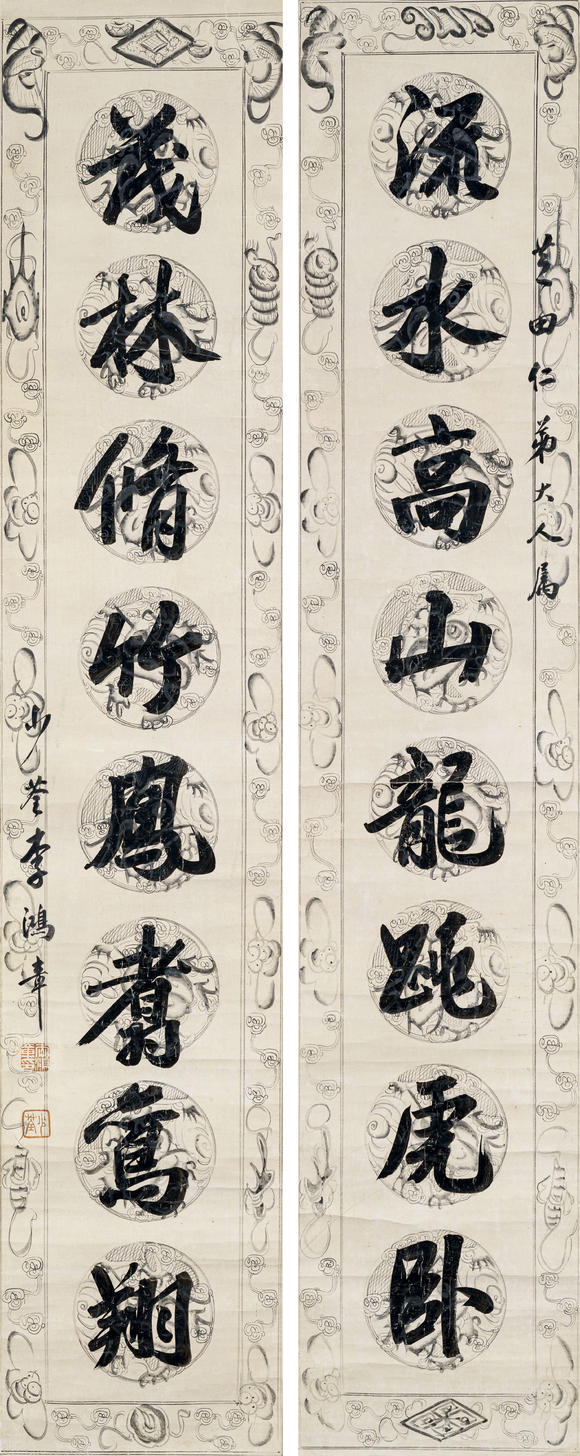 芝田仁弟大人属
流水高山龍跳虎卧
茂林脩竹鳳翥鸞翔
少荃李鴻章
少荃